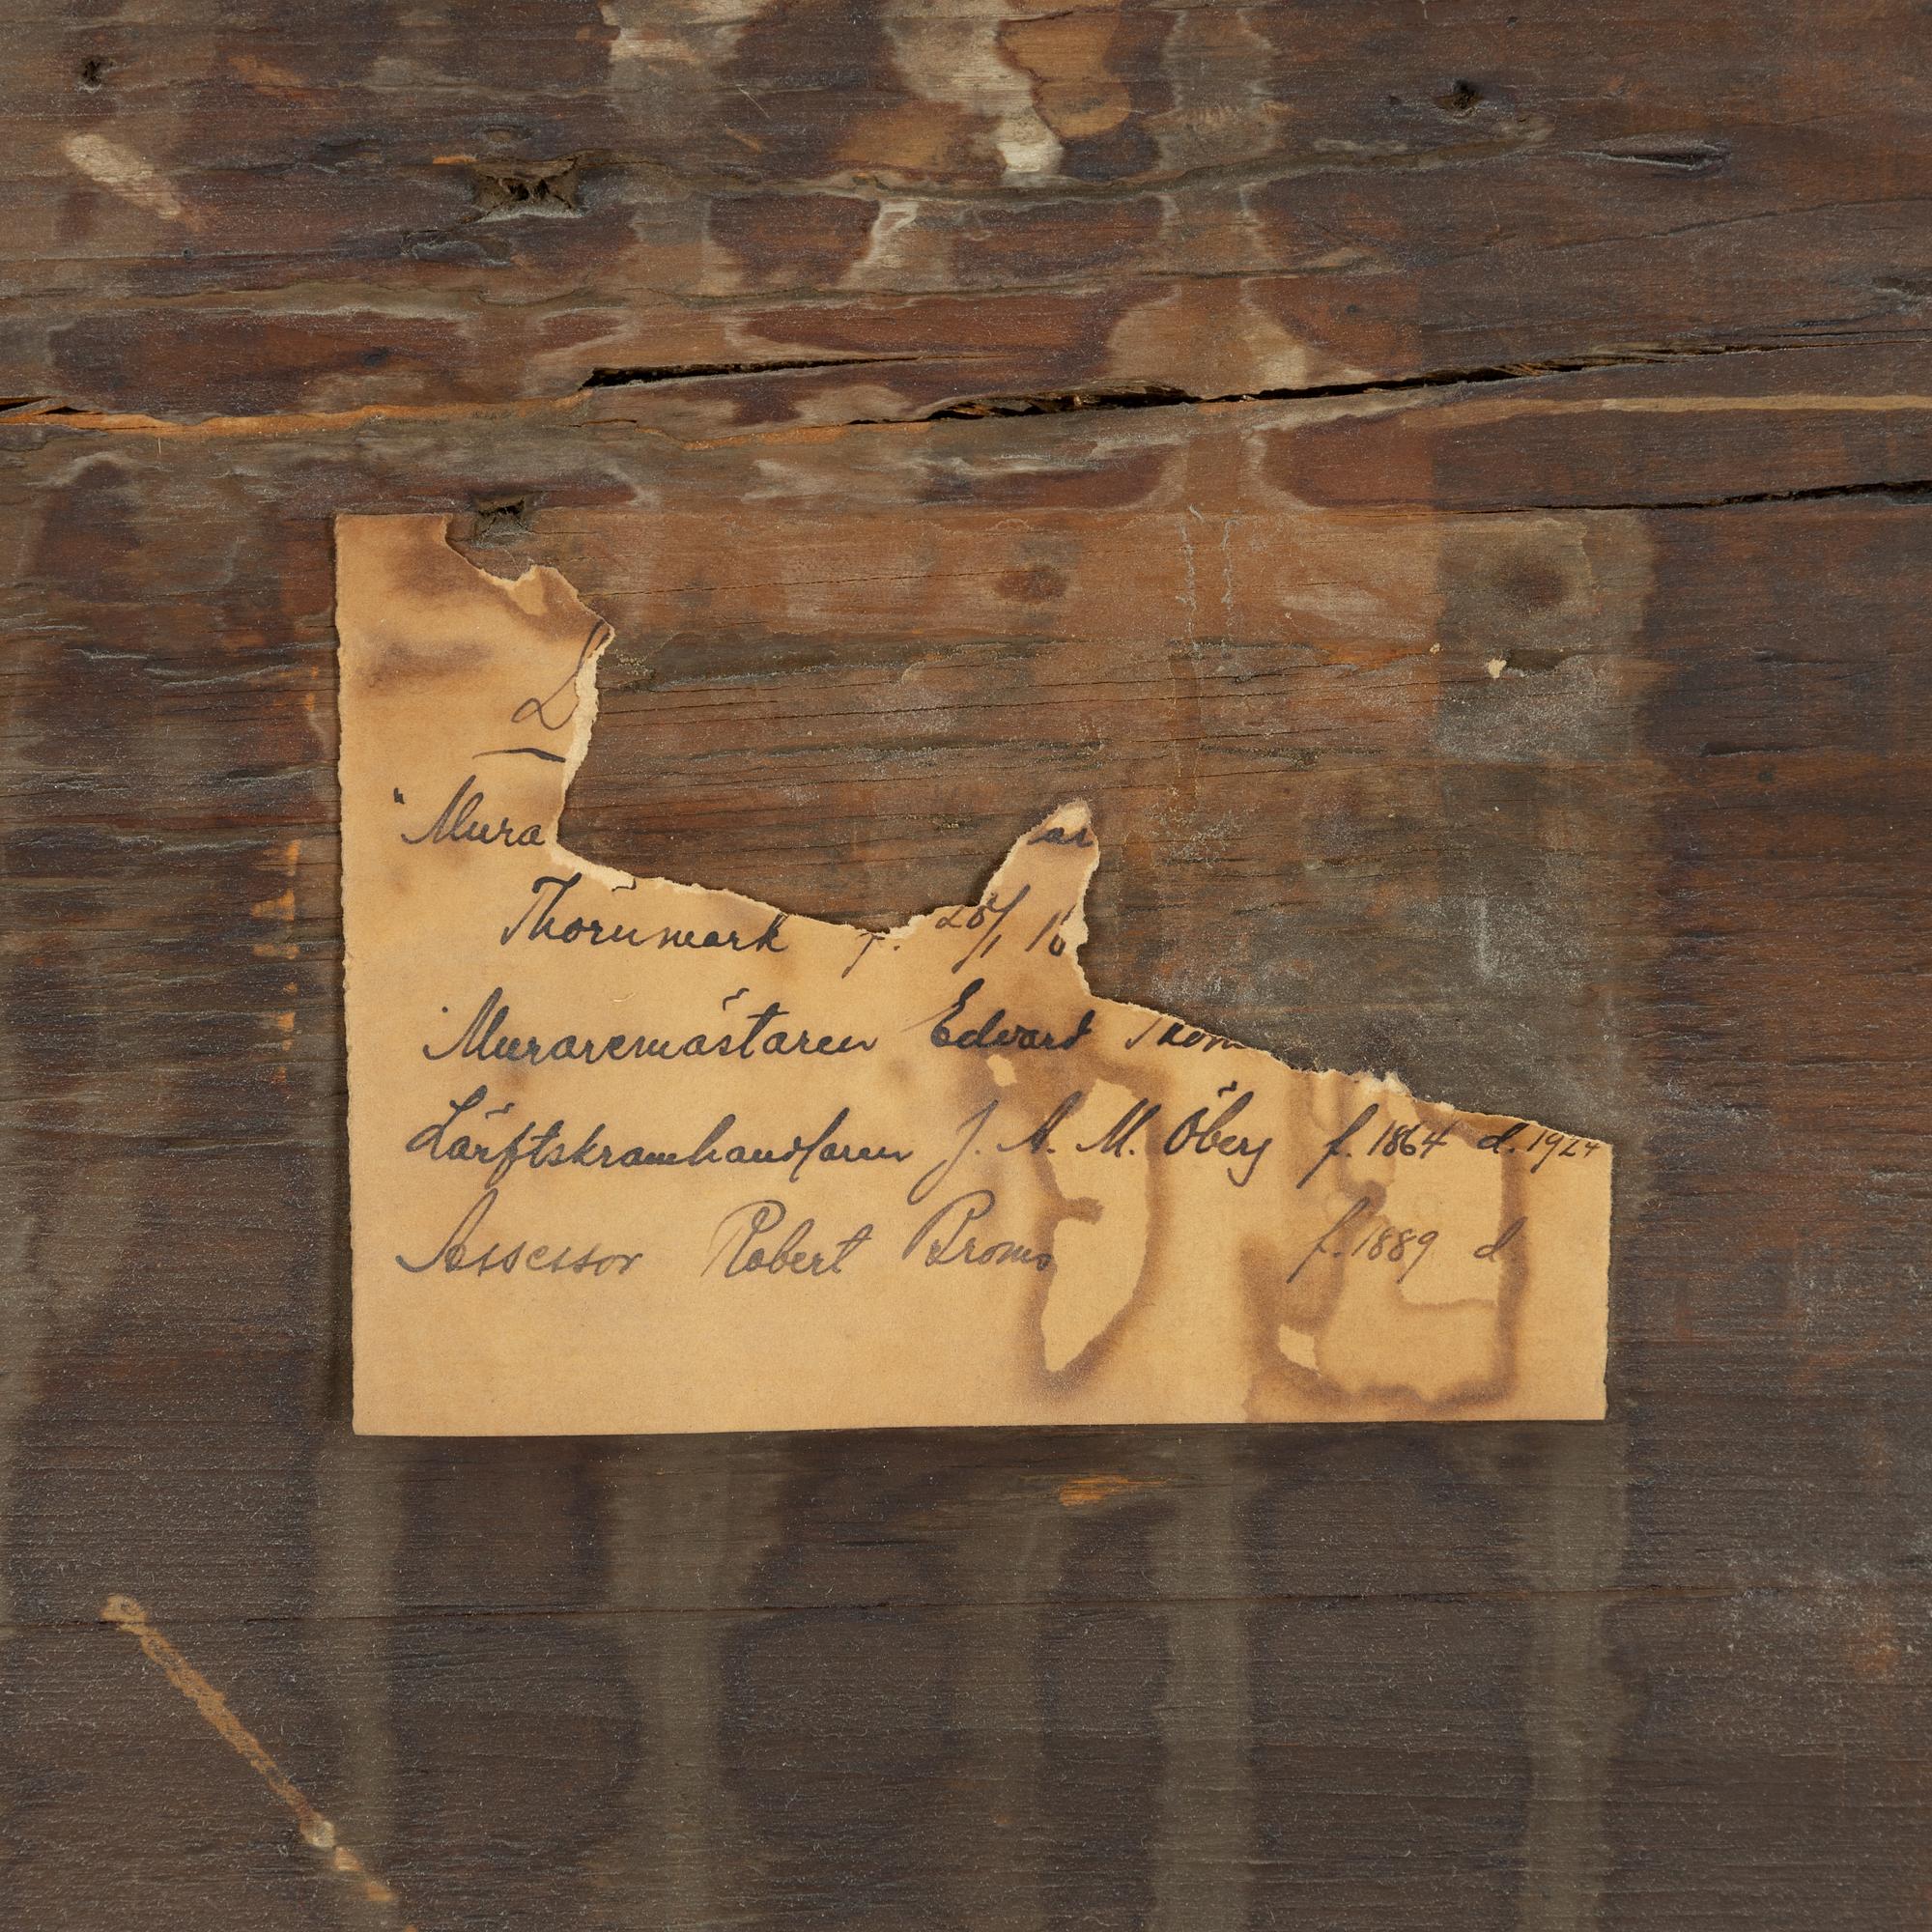 "Mura ar
Thörnmark f. 28/1 18
Muraremästaren Edvard Thörn
Lärftskramhandlaren J. A. M. Öberg f. 1864 d. 1924
Assessor Robert Broms f. 1889 d.